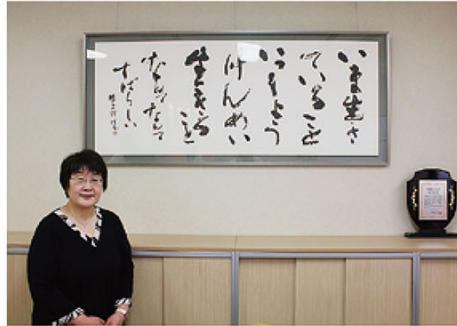 いま生き
ていること
いっしょう
けんめい
生きること
なんてなんて
すばらしい